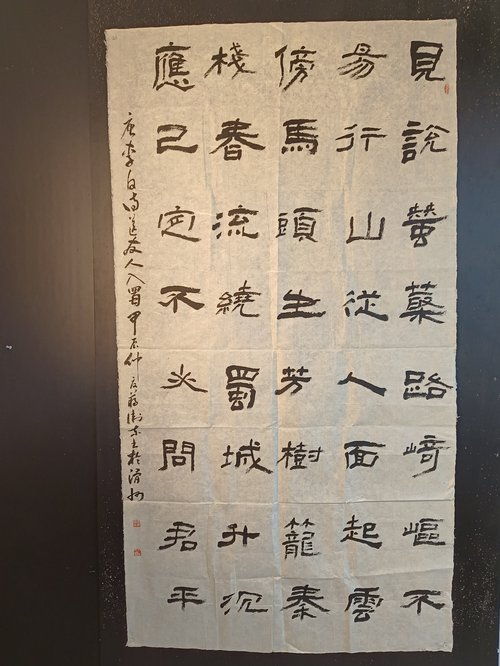 見說蠶叢路崎嶇不
易行山從人面起雲
傍馬頭生芳樹籠秦
棧春流繞蜀城升沉
應已定不必問君平
唐李白詩送友人入蜀甲辰仲夏蔣於